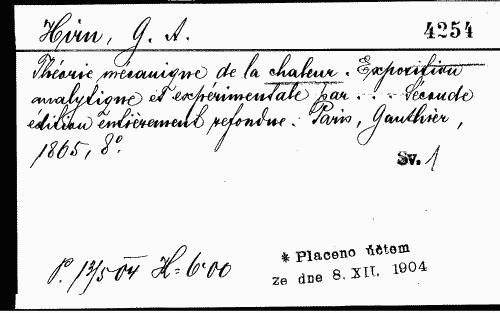 Hirn, G. A. 4254
Théorie mécanique de la chaleur. Exposition
analytique et expérimentale par . . . Seconde
édition entièrement refondue. Paris, Gauthier,
1865, 8°.
Sv. 1
* Placeno účtem
ze dne 8. XII. 1904
P. 12/5 04 H = 6·00